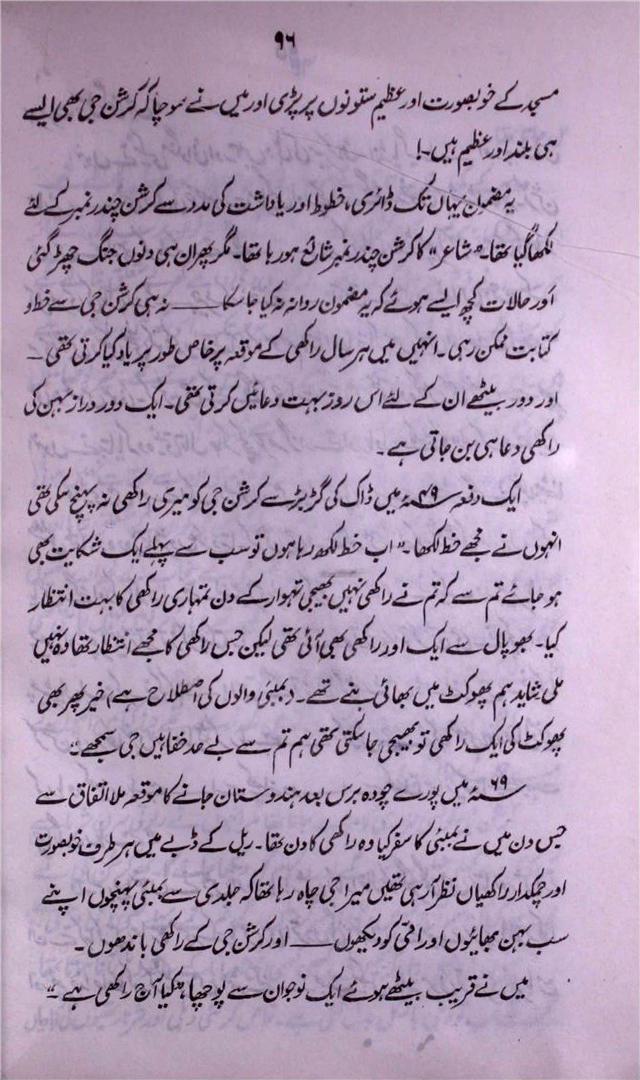 ۹۶
مسجد کے خوبصورت اور عظیم ستونوں پر پڑی اور میں نے سوچا کہ کرشن جی بھی ایسے
ہی بلند اور عظیم ہیں۔!
یہ مضمون یہاں تک ڈائری، خطوط اور یاداشت کی مدد سے کرشن چندر نمبر کے لئے
لکھا گیا تھا۔ "شاعر" کا کرشن چندر نمبر شائع ہو رہا تھا۔ مگر پھر ان ہی دنوں جنگ چھڑ گئی
اور حالات کچھ ایسے ہوئے کہ یہ مضمون روانہ نہ کیا جا سکا ــــ نہ ہی کرشن جی سے خط و
کتابت ممکن رہی۔ انہیں میں ہر سال راکھی کے موقعہ پر خاص طور پر یاد کیا کرتی تھی ــ
اور دور بیٹھے ان کے لئے اس روز بہت دعائیں کرتی تھی۔ ایک دور دراز بہن کی
راکھی دعا ہی بن جاتی ہے۔
ایک دفعہ ۴۹ء میں ڈاک کی گڑبڑ سے کرشن جی کو میری راکھی نہ پہنچ سکی تھی
انہوں نے مجھے خط لکھا۔ "اب خط لکھ رہا ہوں تو سب سے پہلے ایک شکایت بھی
ہو جائے تم سے کہ تم نے راکھی نہیں بھیجی تہوار کے دن تمہاری راکھی کا بہت انتظار
کیا۔ بھوپال سے ایک اور راکھی بھی آئی تھی لیکن جس راکھی کا مجھے انتظار تھا وہ نہیں
ملی شاید ہم پھوکٹ میں بھائی بنے تھے۔ (بمبئی والوں کی اصطلاح ہے) خیر پھر بھی
پھوکٹ کی ایک راکھی تو بھیجی جا سکتی تھی ہم تم سے بے حد خفا ہیں جی سمجھے"
۶۹ء میں پورے چودہ برس بعد ہندوستان جانے کا موقعہ ملا اتفاق سے
جس دن میں نے بمبئی کا سفر کیا وہ راکھی کا دن تھا۔ ریل کے ڈبے میں ہر طرف خوبصورت
اور چمکدار راکھیاں نظر آ رہی تھیں میرا جی چاہ رہا تھا کہ جلدی سے بمبئی پہنچوں اپنے
سب بہن بھائیوں اور افی کو دیکھوں ــــ اور کرشن جی کے راکھی باندھوں۔
میں نے قریب بیٹھے ہوئے ایک نوجوان سے پوچھا "کیا آج راکھی ہے۔"